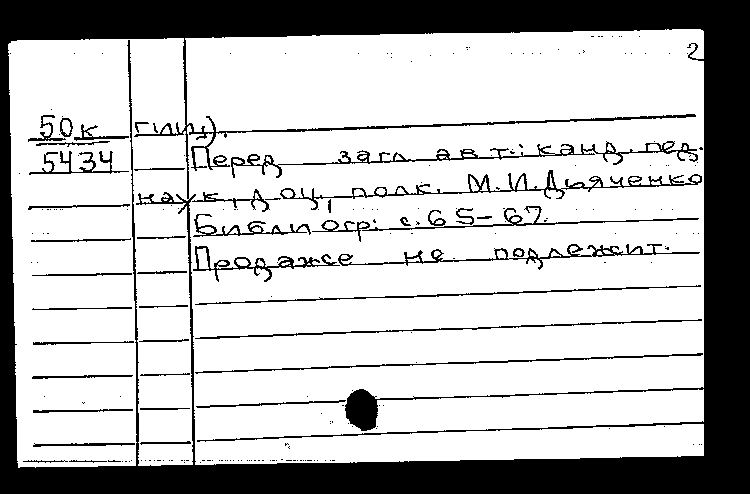 2
50к гии).
5434 Перед загл. авт.: канд. пед.
наук, доц., полк. М.И.Дьяченко
Библиогр: с. 65-67.
Продаже не подлежит.